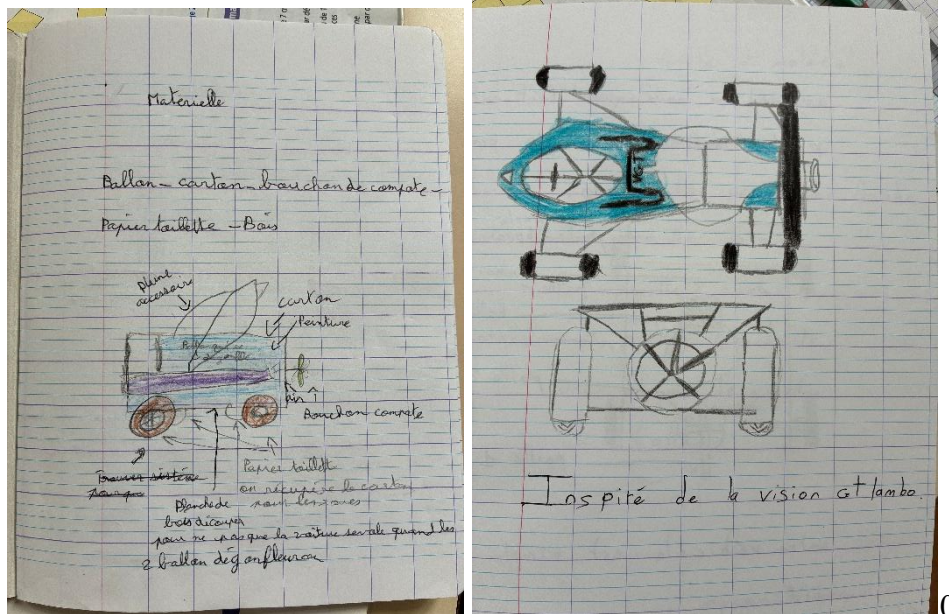 Materielle
Ballon - carton - bouchon de compote -
Papier toillette - Bois
pleine
accessoire
carton
Peinture
air
Bouchon compote
Trouver sistéme
pour que
Papier toillett
on récupère le carton
pour les roues
Planche de
bois découper
pour ne pas que la voiture servale quand les
2 ballon dégonfleron
VGT
Inspité de la vision Gt lambo.